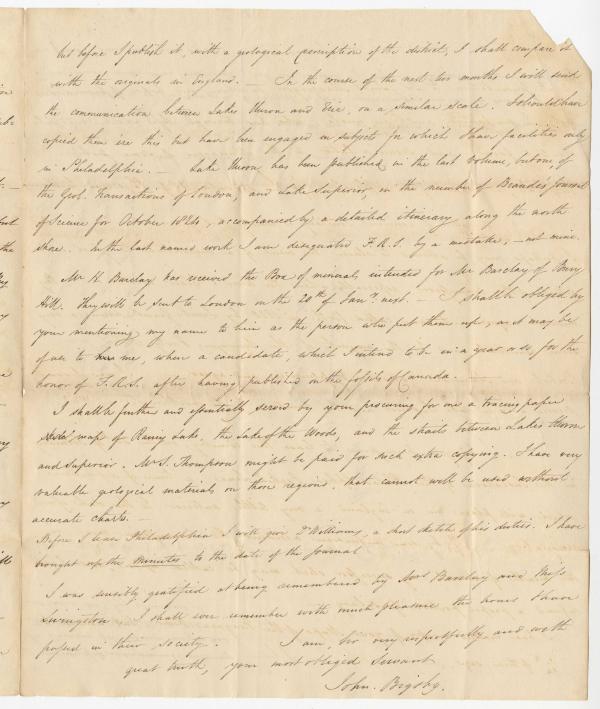 but before I publish it, with a geological description of the district, I shall compare it
with the originals in England. — In the course of the next two months I will send
the communication between Lakes Huron and Erie, on a similar scale. I should have
copied them ere this but have been engaged in subjects for which I have facilities only
in Philadelphia. — Lake Huron has been published in the last volume, but one, of
the Geol. Transactions of London, and Lake Superior in the number of Brandes Journal
of Science for October 1824, accompanied by a detailed itinerary along the north
shore. In the last named work I am designated F.R.S. by a mistake, — not mine.
Mr H. Barclay has received the Box of minerals intended for Mr Barclay of Bury
Hill. They will be sent to London on the 20th of Jany. next. — I shall be obliged by
your mentioning my name to him as the person who put them up, as it may be
of use to me, when a candidate, which I intend to be in a year or so, for the
honor of F.R.S. after having published on the fossils of Canada. —
I shall be further and essentially served by your procuring for me a tracing paper
map of Rainy Lake, the Lake of the Woods, and the straits between Lakes Huron
and Superior. Mr S. Thompson might be paid for such extra copying. I have very
valuable geological materials on those regions, that cannot well be used without
accurate charts.
Before I leave Philadelphia I will give Dr Williams, a short sketch of his duties. I have
brought up the Minutes to the date of the Journal
I was sensibly gratified at being remembered by Mrs Barclay and Miss
Livingston. I shall ever remember with much pleasure the hours I have
passed in their society. I am, Sir very respectfully, and with
great truth, your most obliged Servant
John. Bigsby.